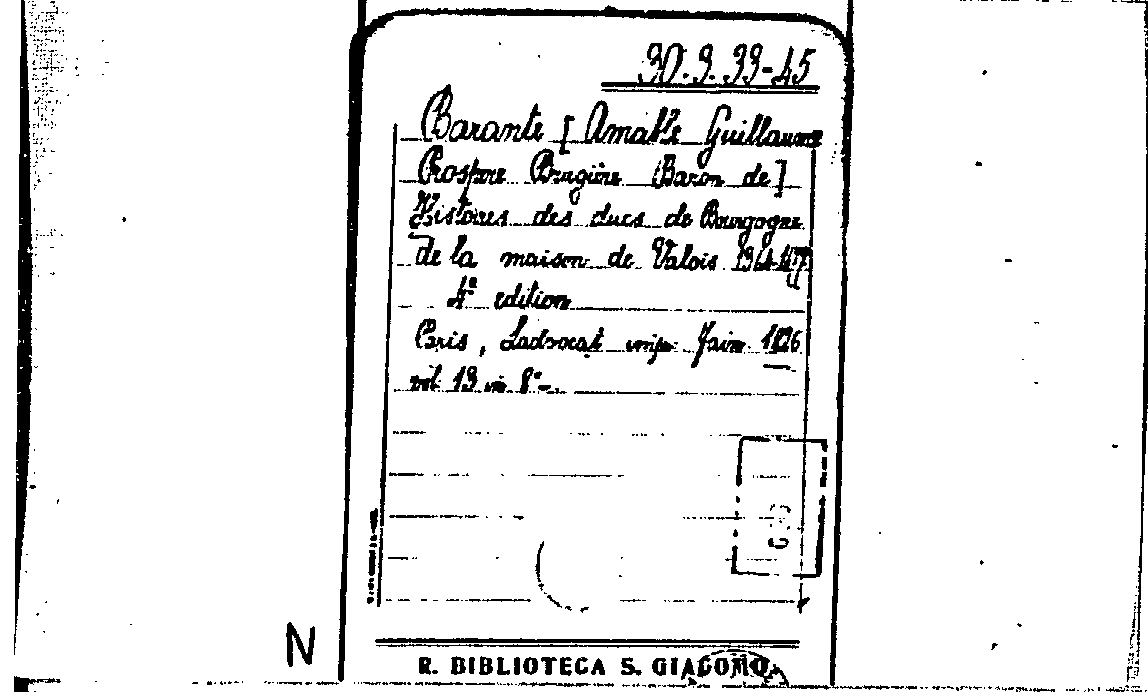 30.9.33-45
Barante [Amable Guillaume
Prospere Brugière (Baron de]
Histoires des ducs de Bourgogne
de la maison de Valois
4e edition
Paris, Ladvocat imp. 1826
vol. 13 in 8°-
N
R. BIBLIOTECA S. GIACOMO